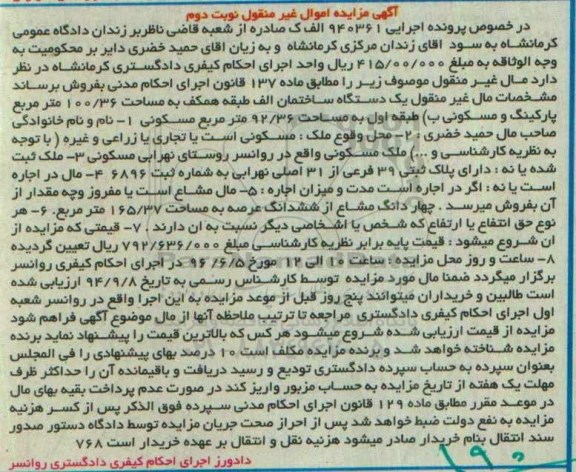 آگهی مزایده اموال غیر منقول نوبت دوم
در خصوص پرونده اجرایی ۹۴۰۳۶۱ الف ک صادره از شعبه قاضی ناظربر زندان دادگاه عمومی
کرمانشاه به سود اقای زندان مرکزی کرمانشاه و به زیان اقای حمید خضری دایر بر محکومیت به
وجه الوثاقه به مبلغ ۴۱۵/۰۰/۰۰۰ ریال واحد اجرای احکام کیفری دادگستری کرمانشاه در نظر
دارد مال غیر منقول موصوف زیر را مطابق ماده ۱۳۷ قانون اجرای احکام مدنی بفروش برساند
مشخصات مال غیر منقول یک دستگاه ساختمان الف طبقه همکف به مساحت ۱۰۰/۳۶ متر مربع
پارکینگ و مسکونی ب) طبقه اول به مساحت ۹۲/۳۶ متر مربع مسکونی ۱- نام و نام خانوادگی
صاحب مال حمید خضری : ۲- محل وقوع ملک : مسکونی است یا تجاری یا زراعی و غیره ( با توجه
به نظریه کارشناسی و ... ملک مسکونی واقع در روانسر روستای نهرابی مسکونی ۳- ملک ثبت
شده یا نه : دارای پلاک ثبتی ۳۹ فرعی از ۳۱ اصلی نهرابی به شماره ثبت ۶۸۹۶ ۴- مال در اجاره
است یا نه : اگر در اجاره است مدت و میزان اجاره : ۵- مال مشاع است یا مفروز وچه مقدار از
آن بفروش میرسد . چهار دانگ مشاع از ششدانگ عرصه به مساحت ۱۶۵/۳۷ متر مربع. ۶- هر
نوع حق انتفاع یا ارتفاع که شخص یا اشخاصی دیگر نسبت به ان دارند . ۷- قیمتی که مزایده از
ان شروع میشود : قیمت پایه برابر نظریه کارشناسی مبلغ ۷۹۲/۶۳۶/۰۰۰ ریال تعیین گردیده
۸- ساعت و روز محل مزایده : ساعت ۱۰ الی ۱۲ مورخ ۹۶/۶/۵ در اجرای احکام کیفری روانسر
برگزار میگردد ضمنا مال مورد مزایده توسط کارشناس رسمی به تاریخ ۹۴/۹/۸ ارزیابی شده
است طالبین و خریداران میتوانند پنج روز قبل از موعد مزایده به این اجرا واقع در روانسر شعبه
اول اجرای احکام کیفری دادگستری مراجعه تا ترتیب ملاحظه آنها از مال موضوع آگهی فراهم شود
مزایده از قیمت ارزیابی شده شروع میشود هر کس که بالاترین قیمت را پیشنهاد نماید برنده
مزایده شناخته خواهد شد و برنده مزایده مکلف است ۱۰ درصد بهای پیشنهادی را فی المجلس
بعنوان سپرده به حساب سپرده دادگستری تودیع و رسید دریافت و باقیمانده آن را حداکثر ظرف
مهلت یک هفته از تاریخ مزایده به حساب مزبور واریز کند در صورت عدم پرداخت بقیه بهای مال
در موعد مقرر مطابق ماده ۱۲۹ قانون اجرای احکام مدنی سپرده فوق الذکر پس از کسر هزینه
مزایده به نفع دولت ضبط خواهد شد پس از احراز صحت جریان مزایده توسط دادگاه دستور صدور
سند انتقال بنام خریدار صادر میشود هزینه نقل و انتقال بر عهده خریدار است ۷۶۸
دادورز اجرای احکام کیفری دادگستری روانسر